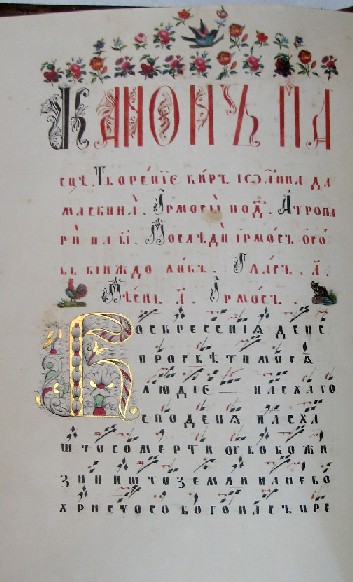 КАНОНЪ ПА
СЦѢ. ТВОРЕНІЕ КИР ІОАННА ДА
МАСКИНА. ІРМОСЫ ПО Д. А ТРОПА
РИ НА ВІ. ПОСЛѢДИ ІРМОСЪ ОБО
И КІИЖДО ЛИКЪ. ГЛАСЪ. А
ПѢСНЬ. А. ІРМОСЪ.
ВОСКРЕСЕНИЯ ДЕНЕ
ПРОСВѢТИМОСЯ
ЛЮДІЕ ПАСХА ГО
СПОДЕНЯ ПАСХА
ѠТО СМЕРТИ БО КО ЖИ
ЗНИ И Ѡ ЗЕМЛИ НЕБО
ХРИСТОСО БОГО НАСЪ ПРЕ